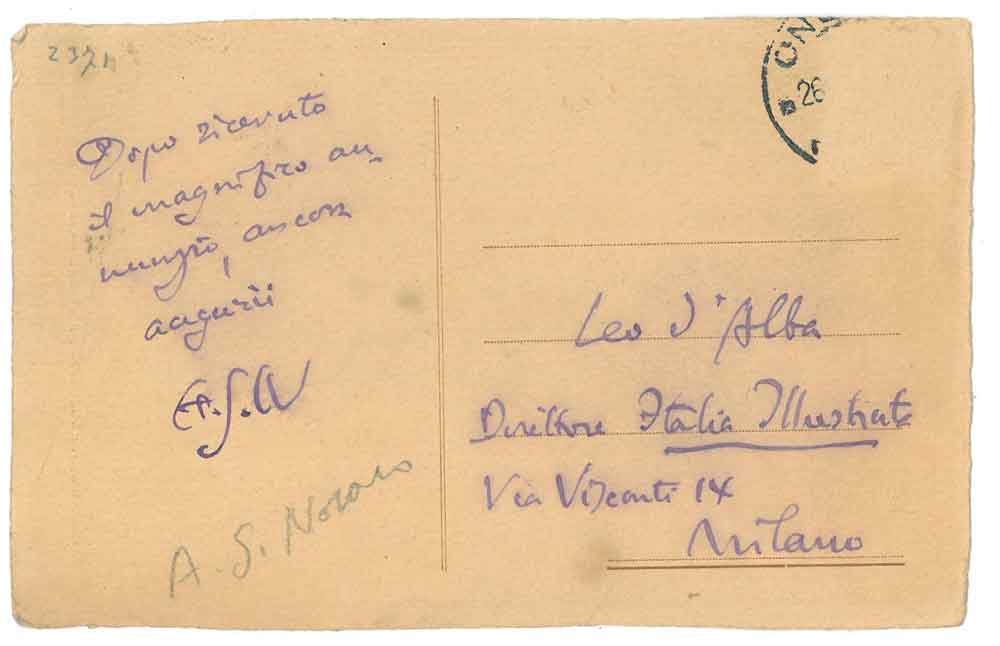 2371
Dopo ricevuto
il magnifico an-
nunzio, ancora
augurii
A. S. Novaro
ON
26
Leo d'Alba
Direttore Italia Illustrata
Via Visconti 14
Milano